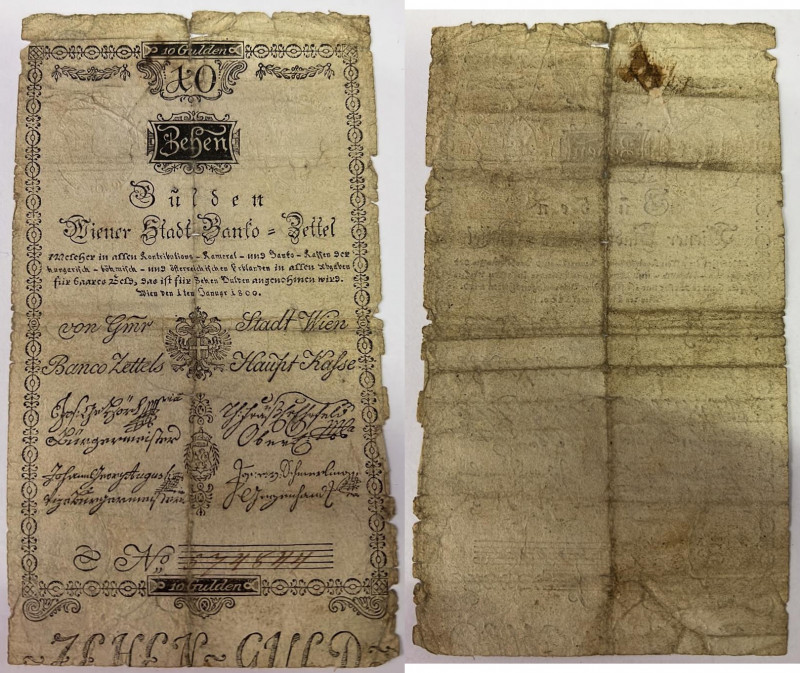 10 Gulden
10
Zehen
Gulden
Wiener Stadt-Banko-Zettel
Welcher in allen Kontributions-Kameral- und Banko-Kassen der
hungarisch-böhmisch- und österreichischen Erblanden in allen Abgaben
für baares Geld, das ist für Zehen Gulden angenommen wird.
Wien den 1ten Januar 1800.
von Gmr Stadt Wien
Banco Zettels Haupt Kasse
Bürgermeister
Johann Georg Augusti
Vizebürgermeister
No 74844
10 Gulden
ZEHEN-GULD